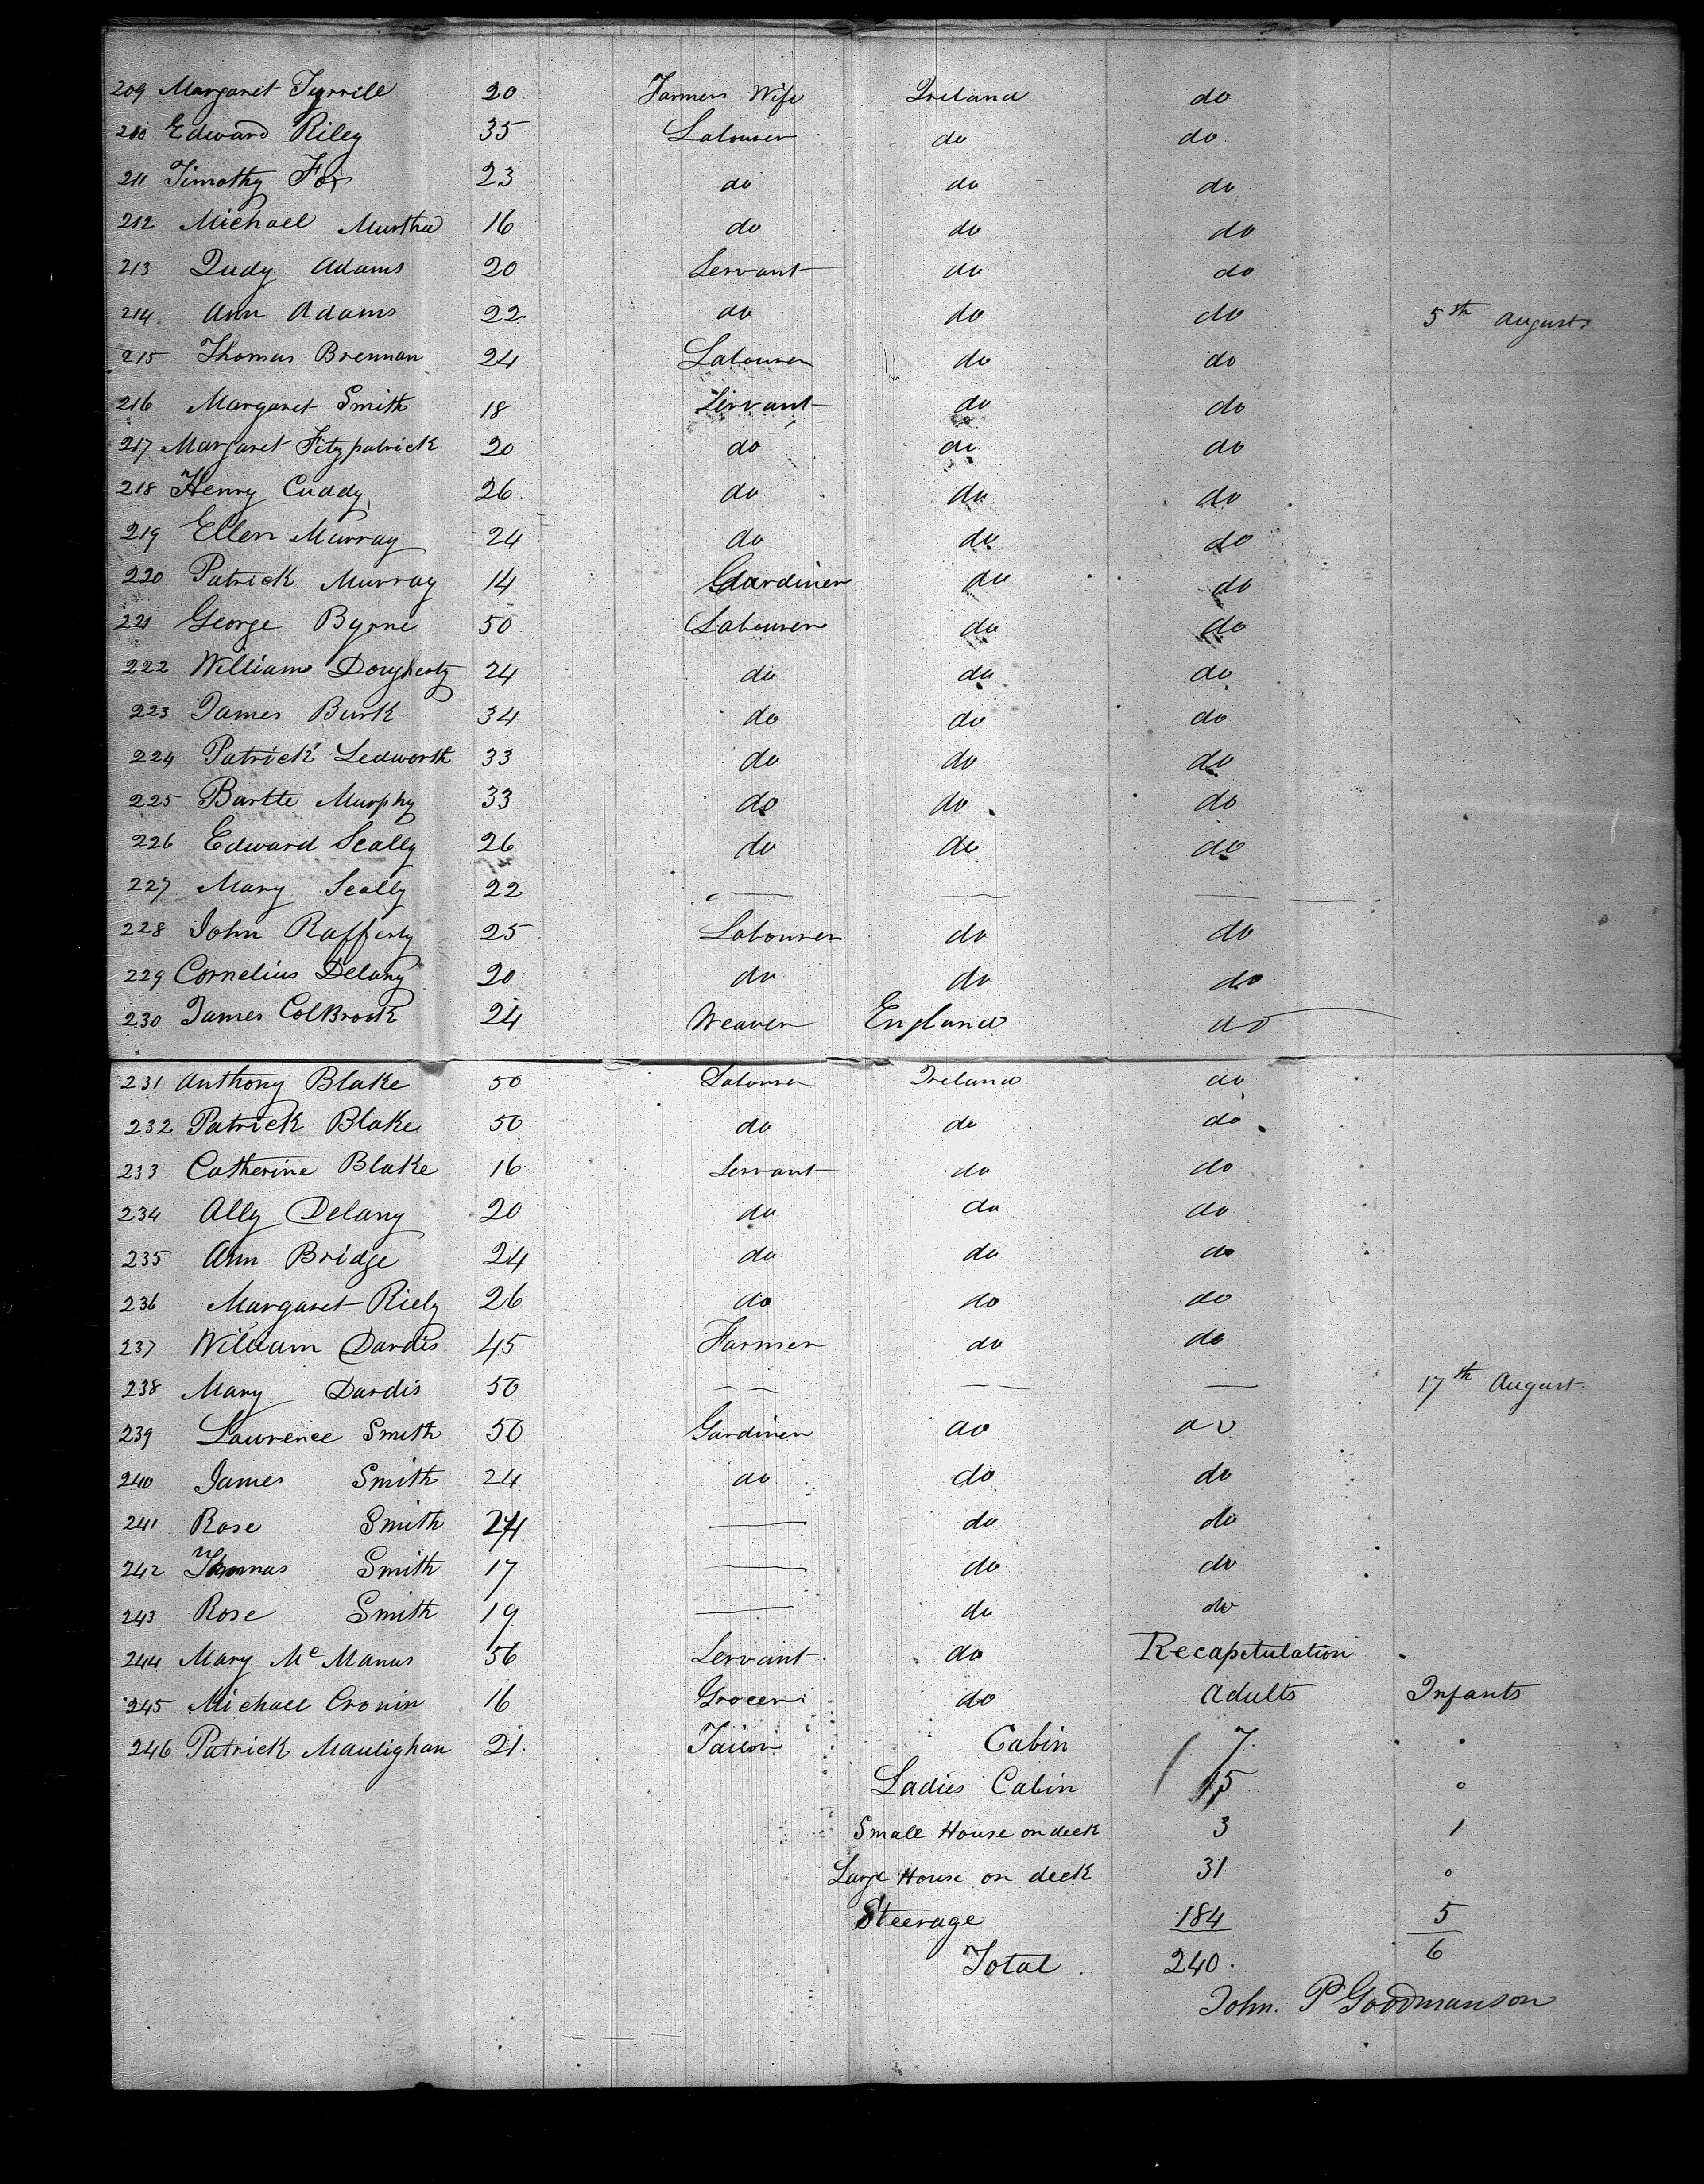 209 Margaret Tyrrile 20 Farmers Wife Ireland do
210 Edward Riley 35 Labourer do do
211 Timothy Fox 23 do do do
212 Michael Murtha 16 do do do
213 Judy Adams 20 Servant do do
214 Ann Adams 22 do do do 5th August
215 Thomas Brennan 24 Labourer do do
216 Margaret Smith 18 Servant do do
217 Margaret Fitzpatrick 20 do do do
218 Henry Cuddy 26 do do do
219 Ellen Murray 24 do do do
220 Patrick Murray 14 Gardiner do do
221 George Byrne 50 Labourer do do
222 William Dougherty 24 do do do
223 James Burk 34 do do do
224 Patrick Ledworth 33 do do do
225 Bartle Murphy 33 do do do
226 Edward Scally 26 do do do
227 Mary Scally 22 — — — —
228 John Rafferty 25 Labourer do do
229 Cornelius Delany 20 do do do
230 James ColBrook 24 Weaver England do
231 Anthony Blake 50 Labourer Ireland do
232 Patrick Blake 50 do do do
233 Catherine Blake 16 Servant do do
234 Ally Delany 20 do do do
235 Ann Bridge 24 do do do
236 Margaret Riely 26 do do do
237 William Dardis 45 Farmer do do
238 Mary Dardis 50 — — — — — 17th August
239 Lawrence Smith 50 Gardiner do do
240 James Smith 24 do do do
241 Rose Smith 24 — do do
242 Thomas Smith 17 — do do
243 Rose Smith 19 — do do
244 Mary Mc Manus 56 Servant do Recapitulation
245 Michael Cronin 16 Grocer do Adults Infants
246 Patrick Maulighan 21 Tailor Cabin 7 "
Ladies Cabin 15 0
Small House on deck 3 1
Large House on deck 31 0
Steerage 184 5
Total 240 6
John. P Goodmanson